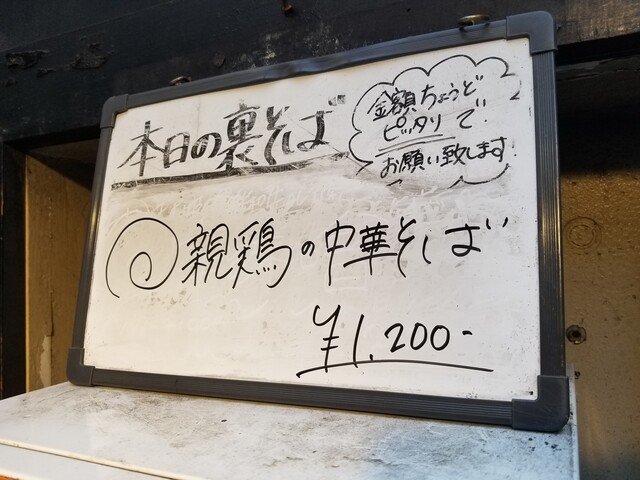 本日の裏そば
金額ちょうど
ピッタリで
お願い致します!
親鶏の中華そば
¥1.200-